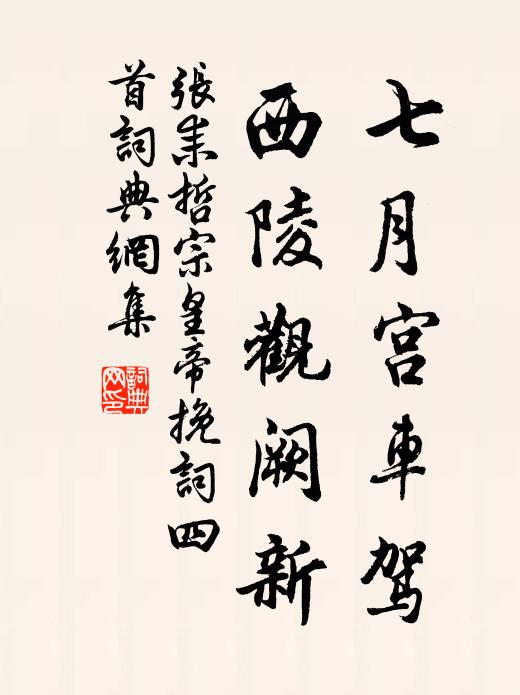 七月宮車駕
西陵觀闕新
張耒哲宗皇帝挽詞四
首詞典網集
詞典網印